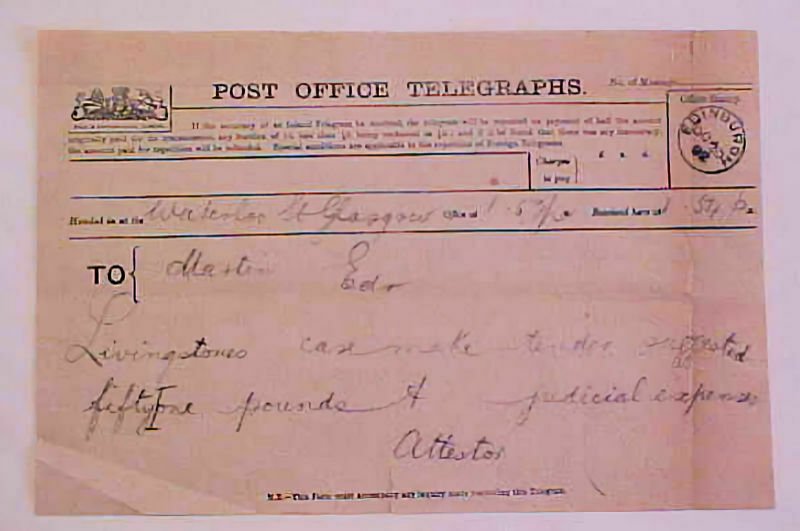 POST OFFICE TELEGRAPHS.
No. of Message
If the accuracy of an Inland Telegram be doubted, the telegram will be repeated on payment of half the amount
originally paid for its transmission, any fraction of 1d. less than ½d. being reckoned as ½d.; and if it be found that there was any inaccuracy,
the amount paid for repetition will be refunded. Special conditions are applicable to the repetition of Foreign Telegrams.
Office Stamp.
EDINBURGH
92
Charges
to pay
£ s. d.
Handed in at the Waterloo St Glasgow Office at Received here at
TO Martin Edr
Livingstones case make tender suggested
as
fifty one pounds & judicial expenses
Attestor
N.B.—This Form must accompany any inquiry made respecting this Telegram.